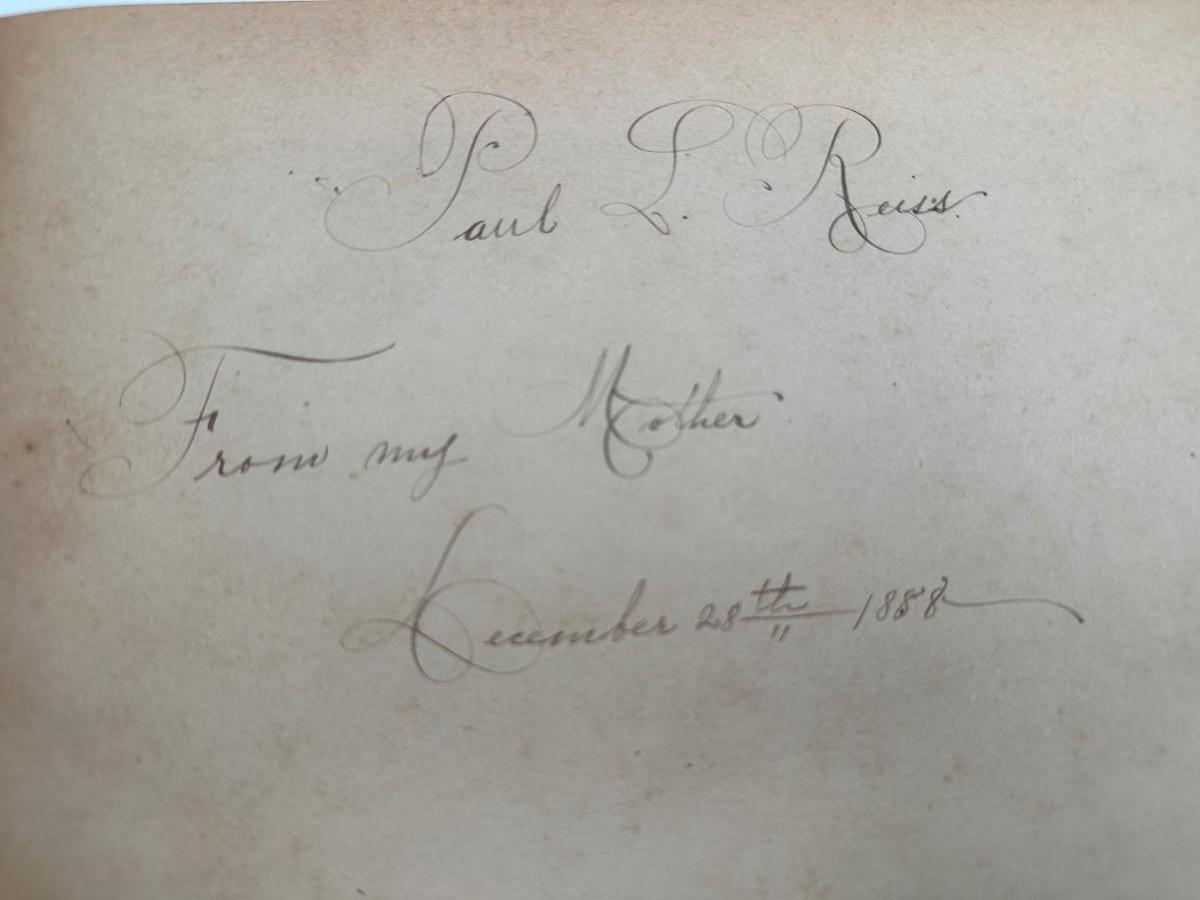 Paul L. Reiss.
From my Mother
December 28th 1888